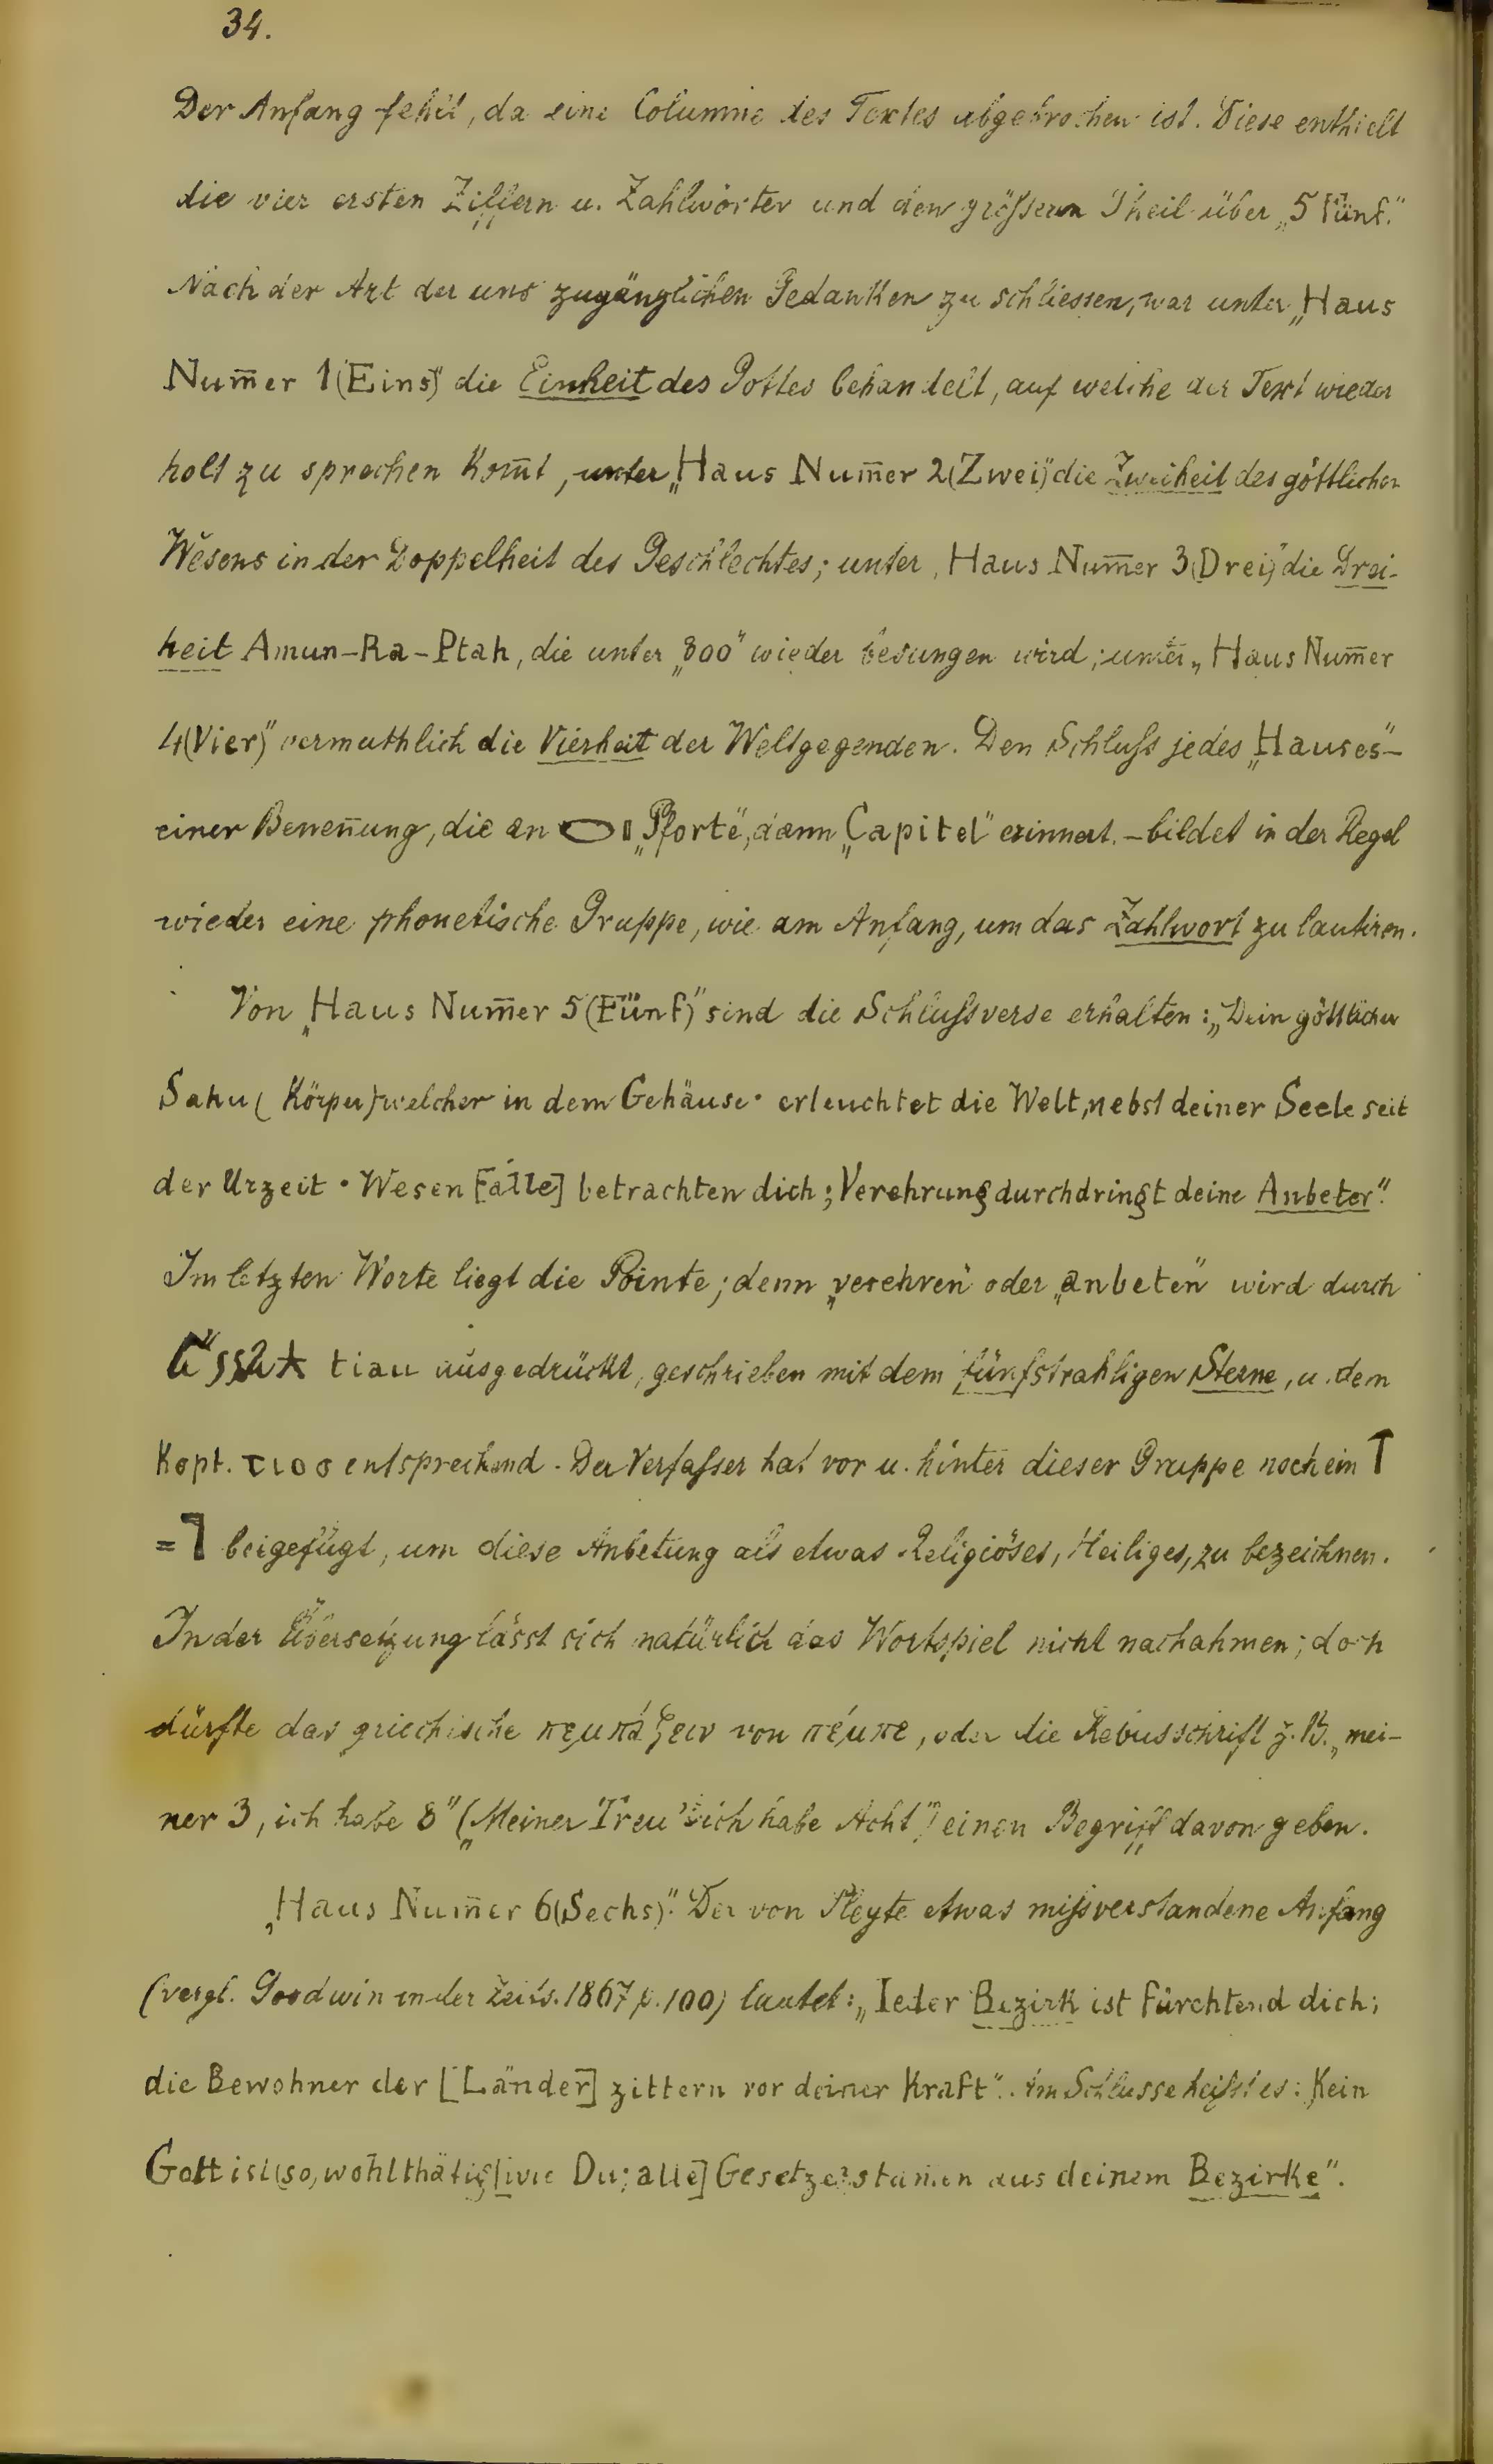 34.
Der Anfang fehlt, da eine Columne des Textes abgebrochen ist. Diese enthielt
die vier ersten Ziffern u. Zahlwörter und den größern Theil über „5 Fünf."
Nach der Art der uns zugänglichen Gedanken zu schliessen, war unter „Haus
Num̄er 1 (Eins)" die Einheit des Gottes behandelt, auf welche der Text wieder
holt zu sprechen kom̄t, unter „Haus Num̄er 2 (Zwei)" die Zweiheit des göttlichen
Wesens in der Doppelheit des Geschlechtes; unter „Haus Num̄er 3 (Drei)" die Drei-
heit Amun-Ra-Ptah, die unter „800" wieder besungen wird; unter „Haus Num̄er
4 (Vier)" vermuthlich die Vierheit der Weltgegenden. Den Schluß jedes „Hauses"-
einer Benen̄ung, die an „Pforte", dann „Capitel" erinnert. – bildet in der Regel
wieder eine phonetische Gruppe, wie am Anfang, um das Zahlwort zu lautiren.
Von „Haus Num̄er 5 (Fünf)" sind die Schlußverse erhalten: „Dein göttlicher
Sahu (Körper) welcher in dem Gehäuse · erleuchtet die Welt, nebst deiner Seele seit
der Urzeit · Wesen [alle] betrachten dich; Verehrung durchdringt deine Anbeter".
Im letzten Worte liegt die Pointe; denn „verehren" oder „anbeten" wird durch
tiau ausgedrückt, geschrieben mit dem fünfstrahligen Sterne, u. dem
Kopt. entsprechend. Der Verfaßer hat vor u. hinter dieser Gruppe noch ein
= beigefügt, um diese Anbetung als etwas Religiöses, Heiliges, zu bezeichnen.
In der Übersetzung lässt sich natürlich das Wortspiel nicht nachahmen; doch
dürfte das griechische πεμπάζειν von πέμπε, oder die Rebusschrift z. B. „mei-
ner 3, ich habe 8" („Meiner Treu' ich habe Acht") einen Begriff davon geben.
„Haus Num̄er 6 (Sechs)". Der von Pleyte etwas mißverstandene Anfang
(vergl. Goodwin in der Zeits. 1867 p. 100) lautet: „Jeder Bezirk ist fürchtend dich;
die Bewohner der [Länder] zittern vor deiner Kraft". Im Schlusse heißt es: „Kein
Gott ist (so) wohlthätig [wie Du; alle] Gesetze stam̄en aus deinem Bezirke".